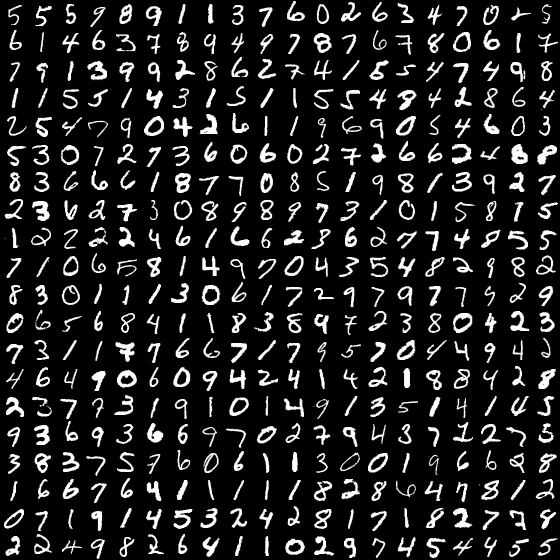 5 5 5 9 8 9 1 1 3 7 6 0 2 6 3 4 7 0 2 5
6 1 4 6 3 7 8 9 4 9 7 8 7 6 7 8 0 6 1 7
7 9 1 3 9 9 2 8 6 2 7 4 1 5 5 4 7 4 9 8
1 1 5 5 1 4 3 1 5 1 1 5 5 4 8 4 2 8 6 4
2 5 4 7 9 0 4 2 6 1 1 9 6 9 0 5 4 6 0 3
5 3 0 7 2 7 3 6 0 6 0 2 7 2 6 6 2 4 8 8
8 3 6 6 6 1 8 7 7 0 8 5 1 9 8 1 3 9 2 7
2 3 6 2 7 3 0 8 9 8 9 7 3 1 0 1 5 8 1 5
1 2 2 2 2 4 6 1 6 6 2 3 6 2 7 7 4 8 5 5
7 1 0 6 5 8 1 4 9 7 0 4 3 5 4 8 2 9 8 2
8 3 0 1 1 1 3 0 6 1 7 2 9 7 9 7 7 9 2 9
0 6 5 6 8 4 1 1 8 3 8 9 7 2 3 8 0 4 2 3
7 3 1 1 7 7 6 6 7 1 7 9 5 7 0 4 4 9 4 2
4 6 4 9 0 6 0 9 4 2 4 1 4 2 1 8 8 4 2 8
2 3 7 7 3 1 9 1 0 1 4 9 1 3 5 1 4 1 6 5
9 3 6 9 3 6 6 9 7 0 2 7 9 4 3 7 1 2 7 3
3 8 3 7 5 7 6 0 6 1 1 3 0 0 1 9 6 6 8 8
1 6 6 7 6 4 1 1 1 1 1 8 2 8 6 4 7 8 1 2
0 7 1 9 1 4 5 3 2 4 2 8 1 7 1 8 2 7 7 8
2 2 4 9 8 2 6 4 1 1 0 2 9 7 4 5 4 4 5 5